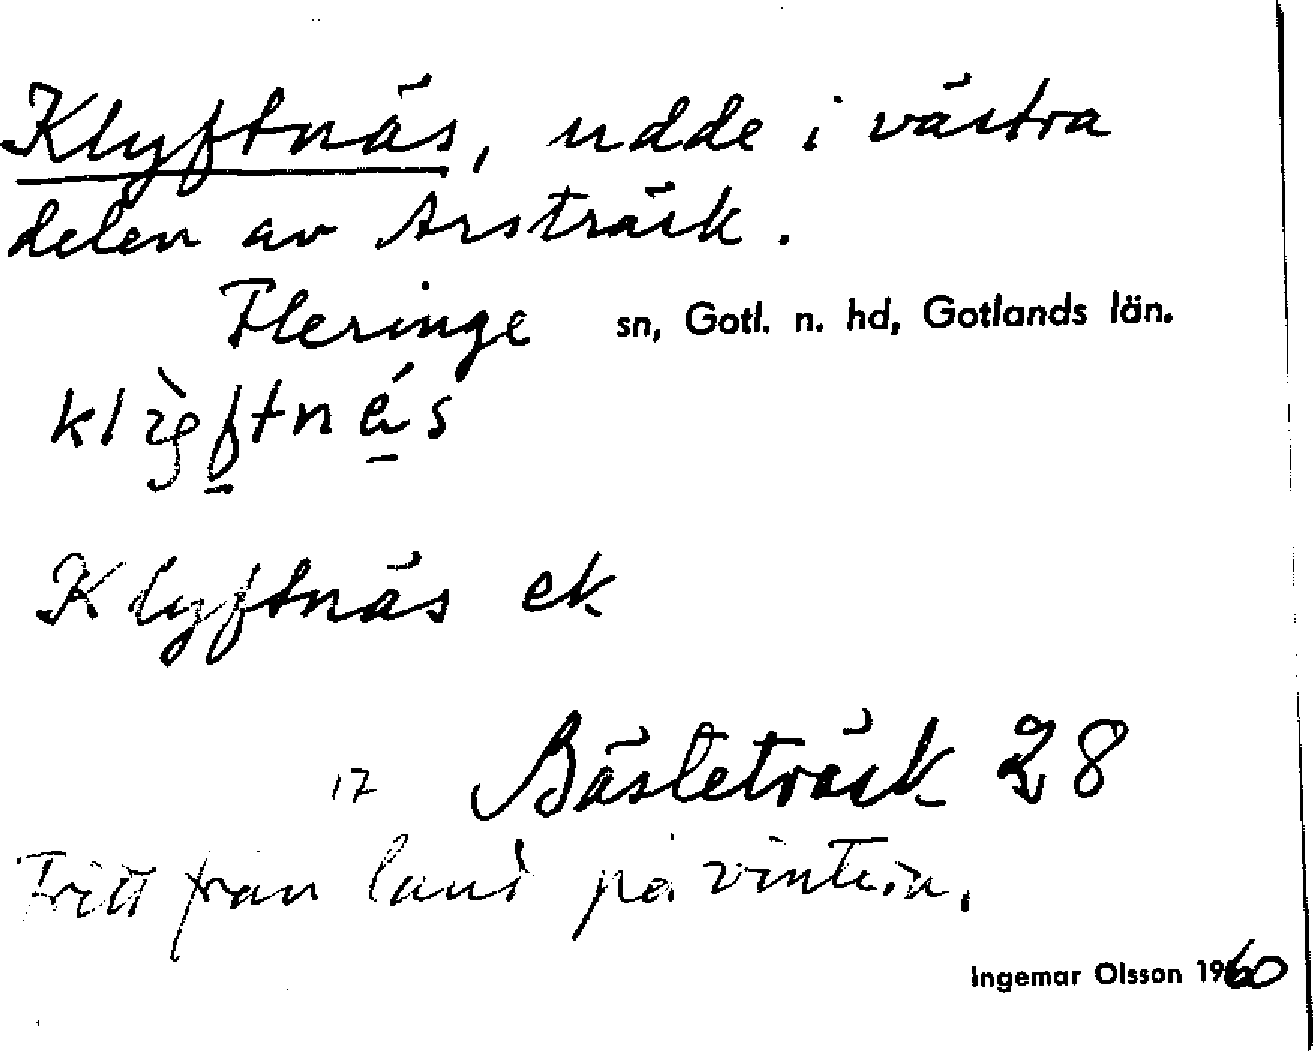 Klyftnäs, udde i västra
delen av Arsträsk.
Fleringe sn, Gotl. n. hd, Gotlands län.
Klyftnäs ek
17 Bästeträsk 28
Fritt från land på vintern.
Ingemar Olsson 1960